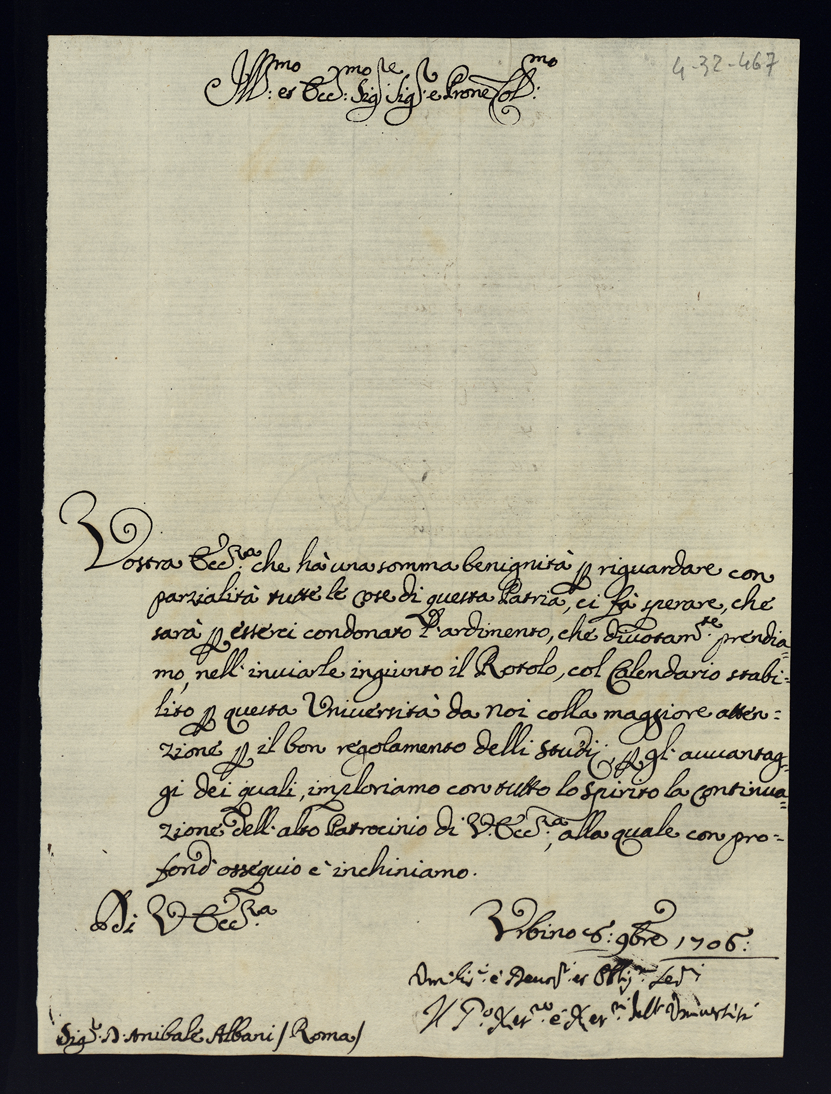 4-32-467
Ill:mo et Ecc:mo Sig:re Sig:r e Prone Col:mo
Vostra Ecc:za che hà una somma benignità p riguardare con
parzialità tutte le cose di questa Patria, ci fà sperare, che
sarà p esserci condonato l'ardimento, che divotam:te prendia=
mo, nell'inviarle ingiunto il Rotolo, col Calendario stabi=
lito p questa Università da noi colla maggiore atten=
zione p il bon regolamento delli studij, p gl'avvantag=
gi dei quali, imploriamo con tutto lo spirito la continua=
zione dell'alto Patrocinio di V. Ecc:za, alla quale con pro=
fond'ossequio c'inchiniamo.
Di V Ecc:za
Urbino 6: 9bre 1706:
Umilis:i e Devot:i et Obblig:i Ser:i
Il e dell'Università
Sig:r D. Anibale Albani / Roma /